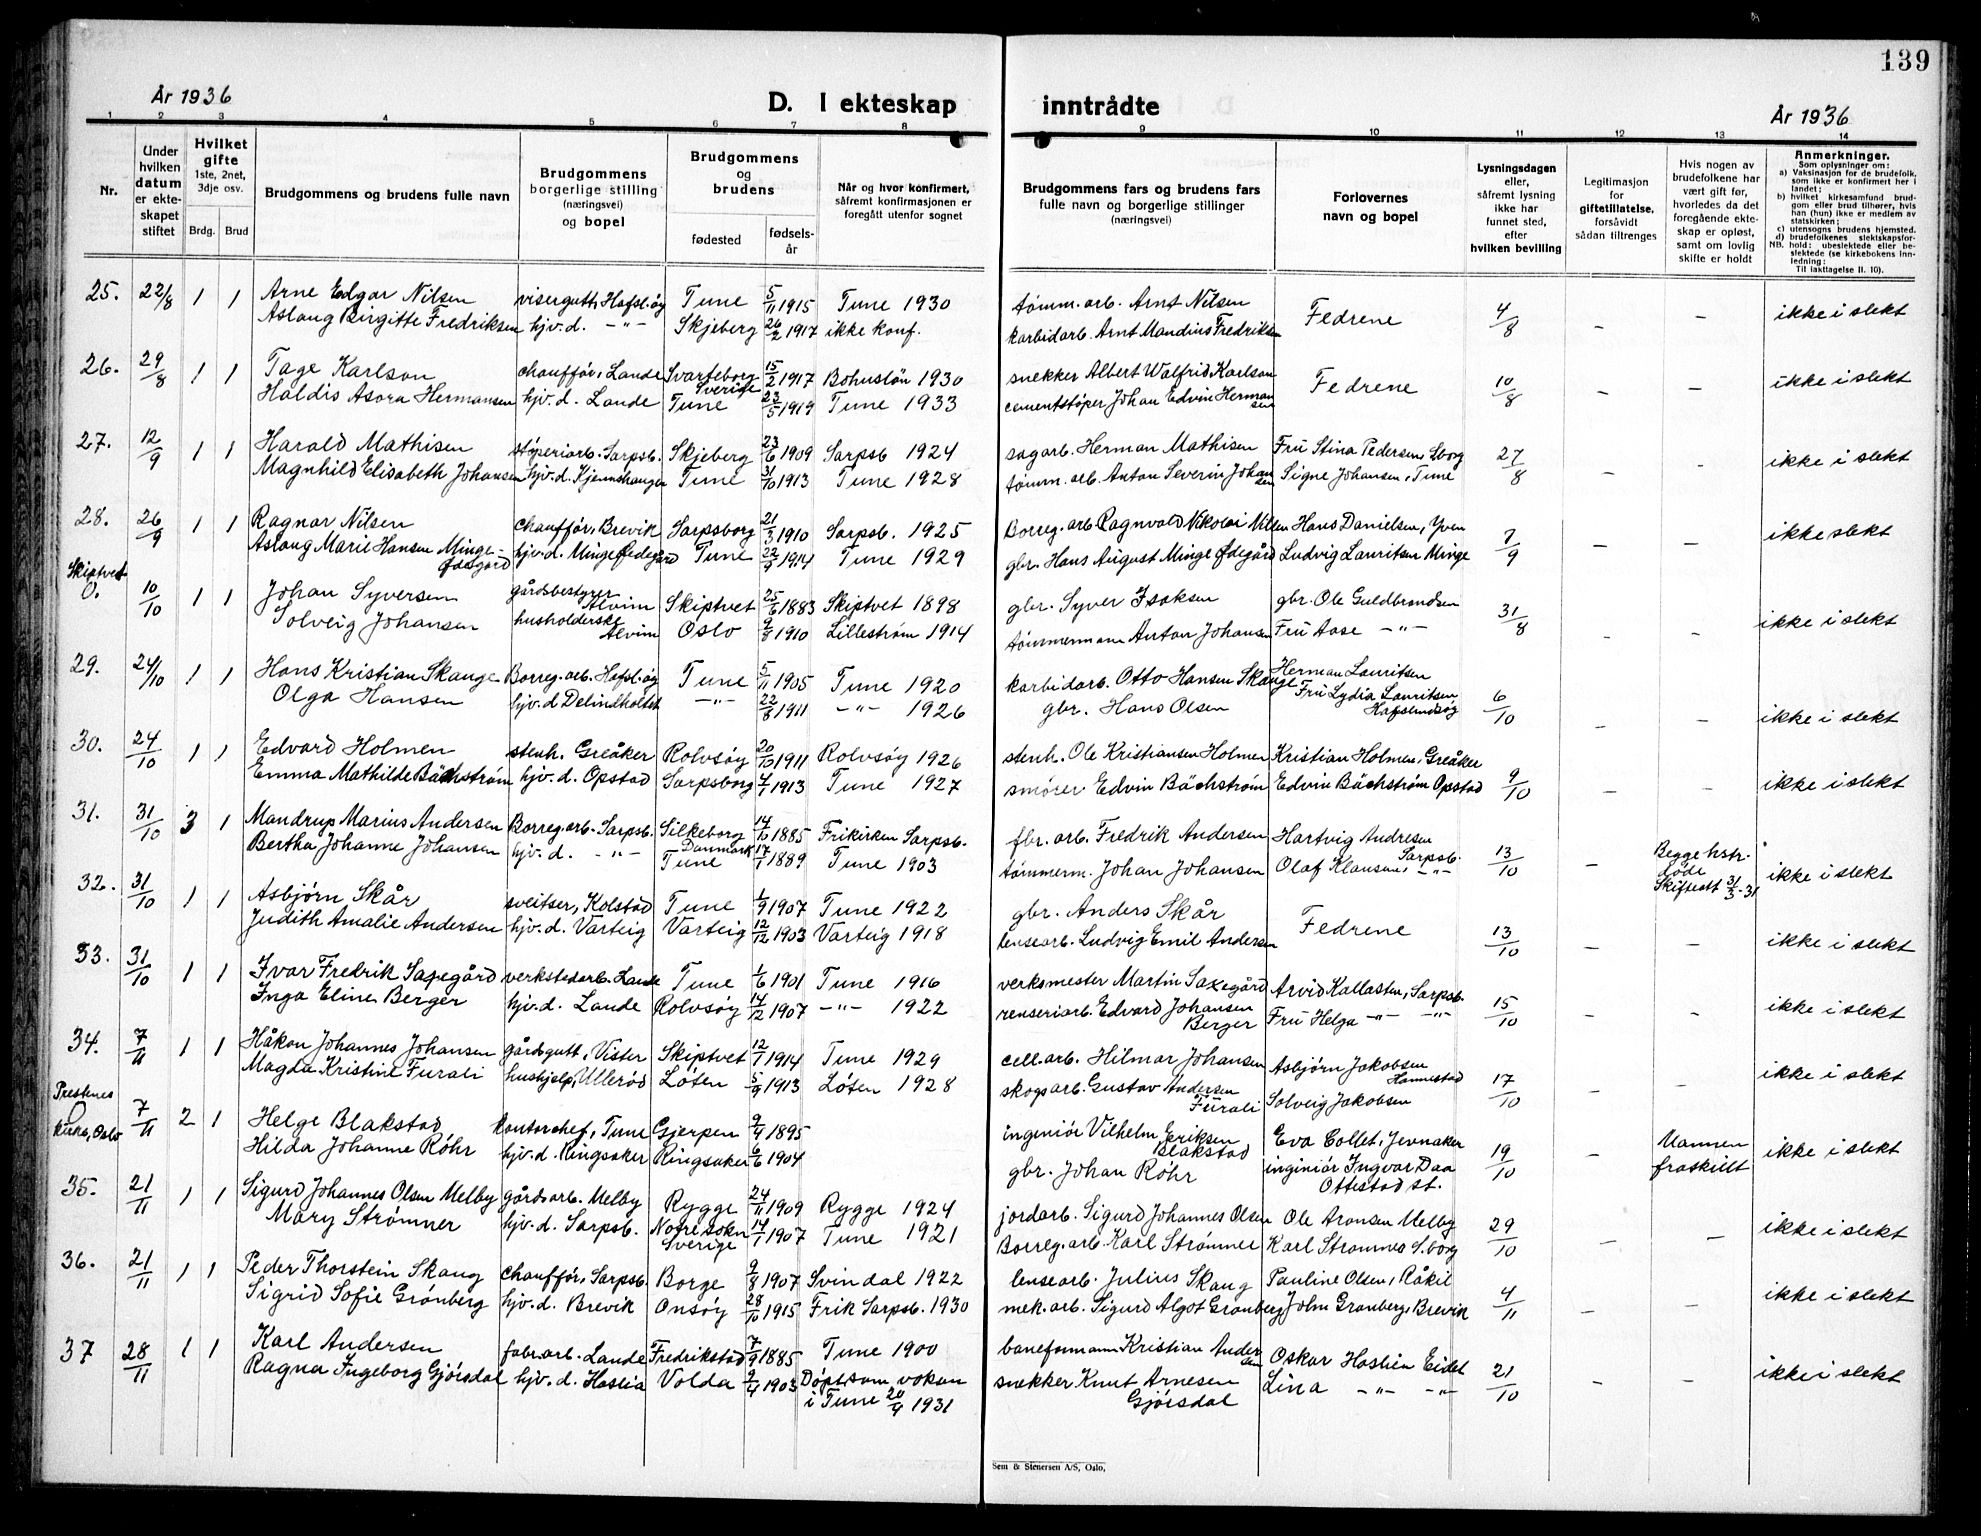 139
År 1936
D. I ekteskap inntrådte
År 1936
1 2 3 4 5 6 7 8 9 10 11 12 13 14
Nr.
Under hvilken datum er ekte-skapet stiftet
Hvilket gifte 1ste, 2net, 3dje osv.
Brdg. Brud
Brudgommens og brudens fulle navn
Brudgommens borgerlige stilling (næringsvei) og bopel
Brudgommens og brudens
fødested
fødsels-år
Når og hvor konfirmert, såfremt konfirmasjonen er foregått utenfor sognet
Brudgommens fars og brudens fars fulle navn og borgerlige stillinger (næringsvei)
Forlovernes navn og bopel
Lysningsdagen eller, såfremt lysning ikke har funnet sted, efter hvilken bevilling
Legitimasjon for giftetillatelse, forsåvidt sådan tiltrenges
Hvis nogen av brudefolkene har vært gift før, hvorledes da det foregående ekte-skap er opløst, samt om lovlig skifte er holdt
Anmerkninger.
Som oplysninger om:
a) Vaksinasjon for de brudefolk, som ikke er konfirmert her i landet;
b) hvilket kirkesamfund brud-gom eller brud tilhører, hvis han (hun) ikke er medlem av statskirken;
c) utensogns brudens hjemsted.
d) brudefolkenes slektskapsfor-hold: ubeslektede eller be-slektede (se kirkebokens inn-ledning:
NB.
Til iakttagelse II. 10).
25. 22/8 1 1 Arne Edgar Nilsen visergutt, Hafsl.øy Tune 5/11 1915 Tune 1930 tømm. arb. Arnt Nilsen Fedrene 4/8 – – ikke i slekt
Aslaug Birgitte Fredriksen hjv.d. -"- Skjeberg 26/2 1917 ikke konf. karbidarb. Arnt Mandius Fredriksen
26. 29/8 1 1 Tage Karlson chauffør, Lande Svarteborg Sverige 15/2 1917 Bohuslän 1930 snekker Albert Walfrid Karlson Fedrene 10/8 – – ikke i slekt
Haldis Asora Hermansen hjv. d. Lande Tune 23/5 1919 Tune 1933 cementstøper Johan Edvin Hermansen
27. 12/9 1 1 Harald Mathisen støperiarb. Sarpsb. Skjeberg 23/6 1909 Sarpsb 1924 sagarb. Herman Mathisen Fru Stina Pedersen, Sborg 27/8 – – ikke i slekt
Magnhild Elisabeth Johansen hjv. d. Kjennshaugen Tune 31/10 1913 Tune 1928 tømm. arb. Anton Severin Johansen Signe Johansen, Tune
28. 26/9 1 1 Ragnar Nilsen chauffør, Brevik Sarpsborg 21/3 1910 Sarpsb. 1925 Borreg. arb. Ragnvald Nikolai Nilsen Hans Danielsen, Yven 7/9 – – ikke slekt
Aslaug Marie Hansen Minge-Ødegård hjv. d. Minge Ødegård Tune 1914 Tune 1929 gbr. Hans August Minge Ødegård Ludvig Lauritsen Minge
Skiptvet
O. 10/10 1 1 Johan Syversen gårdsbestyrer Alvim Skiptvet 25/6 1883 Skiptvet 1898 gbr. Syver Isaksen gbr. Ole Guldbrandsen 31/8 – – ikke i slekt
Solveig Johansen husholderske Alvim Oslo 9/8 1910 Lillestrøm 1914 tømmermann Anton Johansen Fru Aase -"-
29. 24/10 1 1 Hans Kristian Skauge Borreg. arb. Hafsl.øy Tune 5/11 1905 Tune 1920 karbidarb. Otto Hansen Skauge Herman Lauritsen 6/10 – – ikke i slekt
Olga Hansen hjv. d Delindholtet -"- 22/8 1911 -"- 1926 gbr. Hans Olsen Fru Lydia Lauritsen Hafslundsøy
30. 24/10 1 1 Edvard Holmen stenh. Greåker Rolvsøy 20/10 1911 Rolvsøy 1926 stenh. Ole Kristiansen Holmen Kristian Holmen, Greåker 9/10 – – ikke i slekt
Emma Mathilde Bächstrøm hjv. d. Opstad Sarpsborg 4/1 1913 Tune 1927 smører Edvin Bächstrøm Edvin Bächstrøm Opstad
31. 31/10 3 1 Mandrup Marius Andersen Borreg. arb. Sarpsb. Silkeborg Danmark 14/10 1885 Frikirken Sarpsb. fbr. arb. Fredrik Andersen Hartvig Andresen Sarpsb. 13/10 – Begge hstr. døde Skifteatt 31/3-31 ikke i slekt
Bertha Johanne Johansen hjv. d. -"- Tune 17/1 1889 Tune 1903 tømmerm. Johan Johansen Olaf Klausen, -"-
32. 31/10 1 1 Asbjørn Skår sveitser, Kolstad Tune 1/9 1907 Tune 1922 gbr. Anders Skår Fedrene 13/10 – – ikke i slekt
Judith Amalie Andersen hjv. d. Varteig Varteig 12/12 1903 Varteig 1918 lensearb. Ludvig Emil Andersen
33. 31/10 1 1 Ivar Fredrik Saxegård verkstedarb. Lande Tune 1/6 1901 Tune 1916 verksmester Martin Saxegård Arvid Kallasten, Sarpsb. 15/10 – – ikke i slekt
Inga Eline Berger hjv. d. Lande Rolvsøy 14/12 1907 -"- 1922 renseriarb. Edvard Johansen Berger Fru Helga -"- -"-
34. 7/11 1 1 Håkon Johannes Johansen gårdsgutt, Vister Skiptvet 12/1 1914 Tune 1929 cell. arb. Hilmar Johansen Asbjørn Jakobsen Hannestad 17/10 – – ikke i slekt
Magda Kristine Furali hushjelp, Ullerød Løten 5/9 1913 Løten 1928 skogsarb. Gustav Andersen Furali Solveig Jakobsen
Prestenes
O
kirke, Oslo 7/11 2 1 Helge Blakstad kontorchef, Tune Gjerpen 9/4 1895 ingeniør Vilhelm Eriksen Blakstad Eva Collet, Jevnaker 19/10 – Mannen fraskilt ikke i slekt
Hilda Johanne Røhr hjv. d. Ringsaker Ringsaker 6/6 1904 gbr. Johan Røhr inginiør Ingvar Daa Ottestad st.
35. 21/11 1 1 Sigurd Johannes Olsen Melby gårdsarb. Melby Rygge 24/11 1909 Rygge 1924 jordarb. Sigurd Johannes Olsen Ole Aronsen Melby 29/10 – – ikke i slekt
Mary Strømner hjv. d. Sarpsb. Sverige 14/1 1907 Tune 1921 Borreg. arb. Karl Strømner Karl Strømnes S.borg
36. 21/11 1 1 Peder Thorstein Skaug chauffør, Sarpsb. Borge 9/8 1907 Svindal 1922 lensearb. Julius Skaug Pauline Olsen, Råkil 4/11 – – ikke i slekt
Sigrid Sofie Grønberg hjv. d. Brevik Onsøy 28/10 1915 Frik Sarpsb. 1930 mek. arb. Sigurd Algot Grønberg John Grønberg, Brevik
37 28/11 1 1 Karl Andersen fabr. arb. Lande Fredrikstad 7/9 1885 Tune 1900 baneformann Kristian Andersen Oskar Haslien Eidet 21/10 – – ikke i slekt
Ragna Ingeborg Gjørsdal hjv. d. Haslia Volda 9/4 1903 Døpt som voksen i Tune 20/9 1931 snekker Knut Arnesen Gjørsdal Lina -"- -"-
Sem & Stenersen A/S, Oslo.